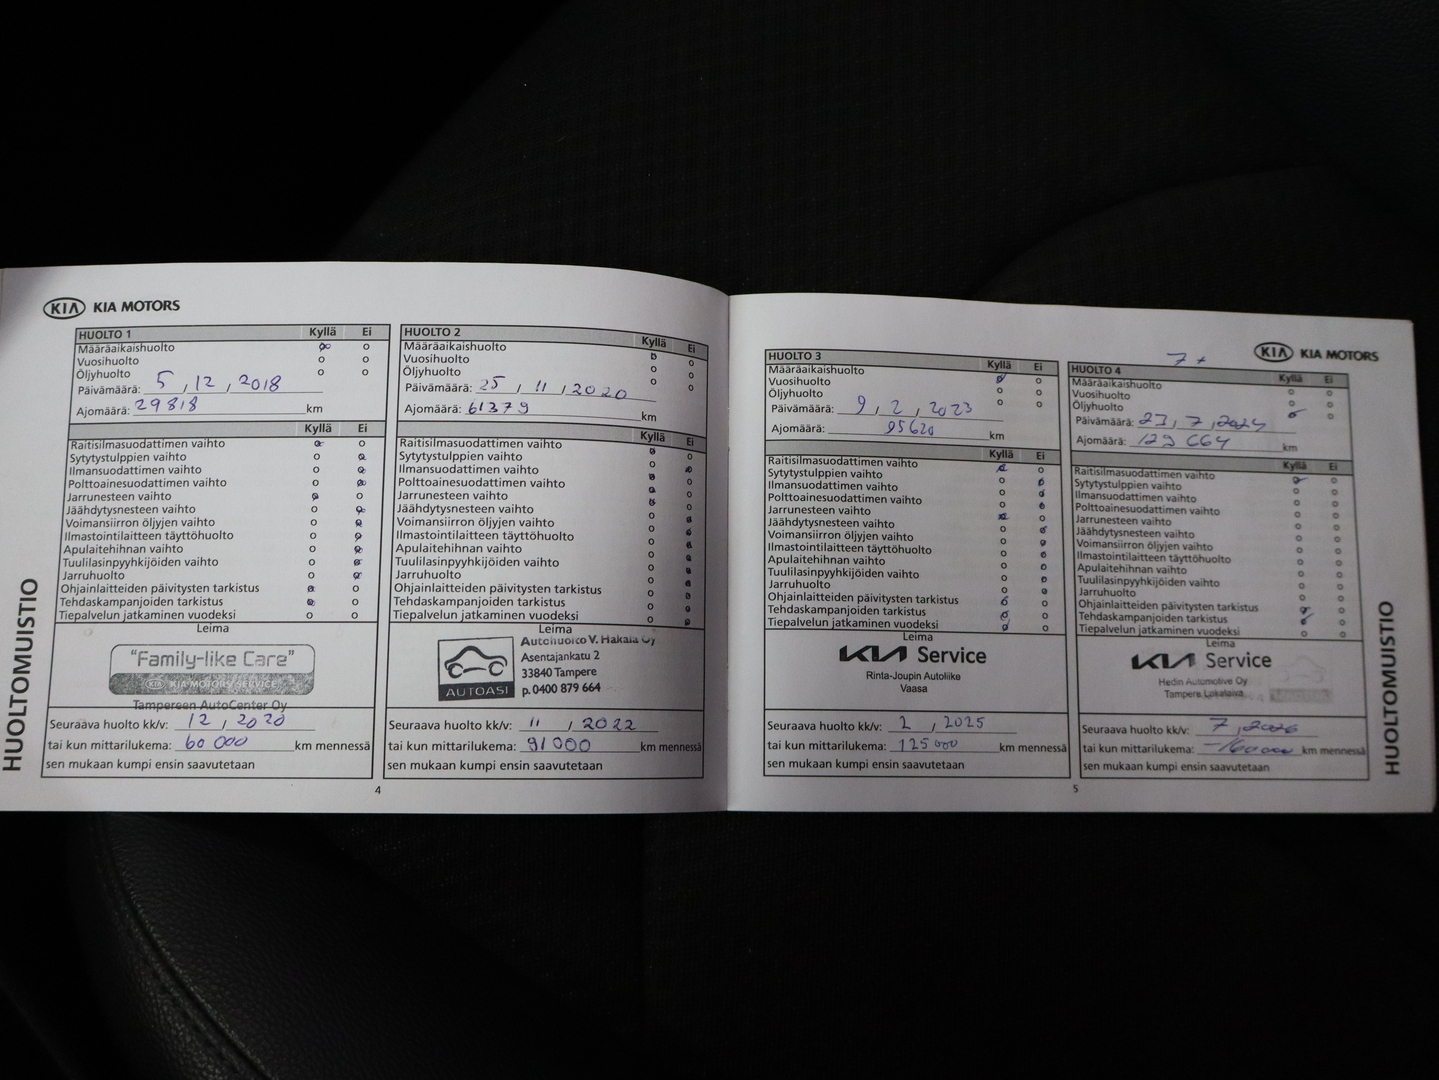 KIA KIA MOTORS
HUOLTOMUISTIO
HUOLTO 1 Kyllä Ei
Määräaikaishuolto
Vuosihuolto
Öljyhuolto
Päivämäärä: 5, 12, 2018
Ajomäärä: 29818 km
Kyllä Ei
Raitisilmasuodattimen vaihto
Sytytystulppien vaihto
Ilmansuodattimen vaihto
Polttoainesuodattimen vaihto
Jarrunesteen vaihto
Jäähdytysnesteen vaihto
Voimansiirron öljyjen vaihto
Ilmastointilaitteen täyttöhuolto
Apulaitehihnan vaihto
Tuulilasinpyyhkijöiden vaihto
Jarruhuolto
Ohjainlaitteiden päivitysten tarkistus
Tehdaskampanjoiden tarkistus
Tiepalvelun jatkaminen vuodeksi
Leima
"Family-like Care"
KIA KIA MOTORS SERVICE
Tampereen AutoCenter Oy
Seuraava huolto kk/v: 12, 2020
tai kun mittarilukema: 60 000 km mennessä
sen mukaan kumpi ensin saavutetaan
HUOLTO 2 Kyllä Ei
Määräaikaishuolto
Vuosihuolto
Öljyhuolto
Päivämäärä: 25, 11, 2020
Ajomäärä: 61379 km
Kyllä Ei
Raitisilmasuodattimen vaihto
Sytytystulppien vaihto
Ilmansuodattimen vaihto
Polttoainesuodattimen vaihto
Jarrunesteen vaihto
Jäähdytysnesteen vaihto
Voimansiirron öljyjen vaihto
Ilmastointilaitteen täyttöhuolto
Apulaitehihnan vaihto
Tuulilasinpyyhkijöiden vaihto
Jarruhuolto
Ohjainlaitteiden päivitysten tarkistus
Tehdaskampanjoiden tarkistus
Tiepalvelun jatkaminen vuodeksi
Leima
Autohuolto V. Hakala Oy
Asentajankatu 2
33840 Tampere
p. 0400 879 664
AUTOASI
Seuraava huolto kk/v: 11, 2022
tai kun mittarilukema: 91000 km mennessä
sen mukaan kumpi ensin saavutetaan
4
HUOLTO 3 Kyllä Ei
Määräaikaishuolto
Vuosihuolto
Öljyhuolto
Päivämäärä: 9, 2, 2023
Ajomäärä: 95620 km
Kyllä Ei
Raitisilmasuodattimen vaihto
Sytytystulppien vaihto
Ilmansuodattimen vaihto
Polttoainesuodattimen vaihto
Jarrunesteen vaihto
Jäähdytysnesteen vaihto
Voimansiirron öljyjen vaihto
Ilmastointilaitteen täyttöhuolto
Apulaitehihnan vaihto
Tuulilasinpyyhkijöiden vaihto
Jarruhuolto
Ohjainlaitteiden päivitysten tarkistus
Tehdaskampanjoiden tarkistus
Tiepalvelun jatkaminen vuodeksi
Leima
KIA Service
Rinta-Joupin Autoliike
Vaasa
Seuraava huolto kk/v: 2, 2025
tai kun mittarilukema: 125000 km mennessä
sen mukaan kumpi ensin saavutetaan
7+
KIA KIA MOTORS
HUOLTO 4 Kyllä Ei
Määräaikaishuolto
Vuosihuolto
Öljyhuolto
Päivämäärä: 23, 7, 2024
Ajomäärä: 129 664 km
Kyllä Ei
Raitisilmasuodattimen vaihto
Sytytystulppien vaihto
Ilmansuodattimen vaihto
Polttoainesuodattimen vaihto
Jarrunesteen vaihto
Jäähdytysnesteen vaihto
Voimansiirron öljyjen vaihto
Ilmastointilaitteen täyttöhuolto
Apulaitehihnan vaihto
Tuulilasinpyyhkijöiden vaihto
Jarruhuolto
Ohjainlaitteiden päivitysten tarkistus
Tehdaskampanjoiden tarkistus
Tiepalvelun jatkaminen vuodeksi
Leima
KIA Service
Hedin Automotive Oy
Tampere Lakalaiva
Seuraava huolto kk/v: 7, 2026
tai kun mittarilukema: -160000 km mennessä
sen mukaan kumpi ensin saavutetaan
5
HUOLTOMUISTIO